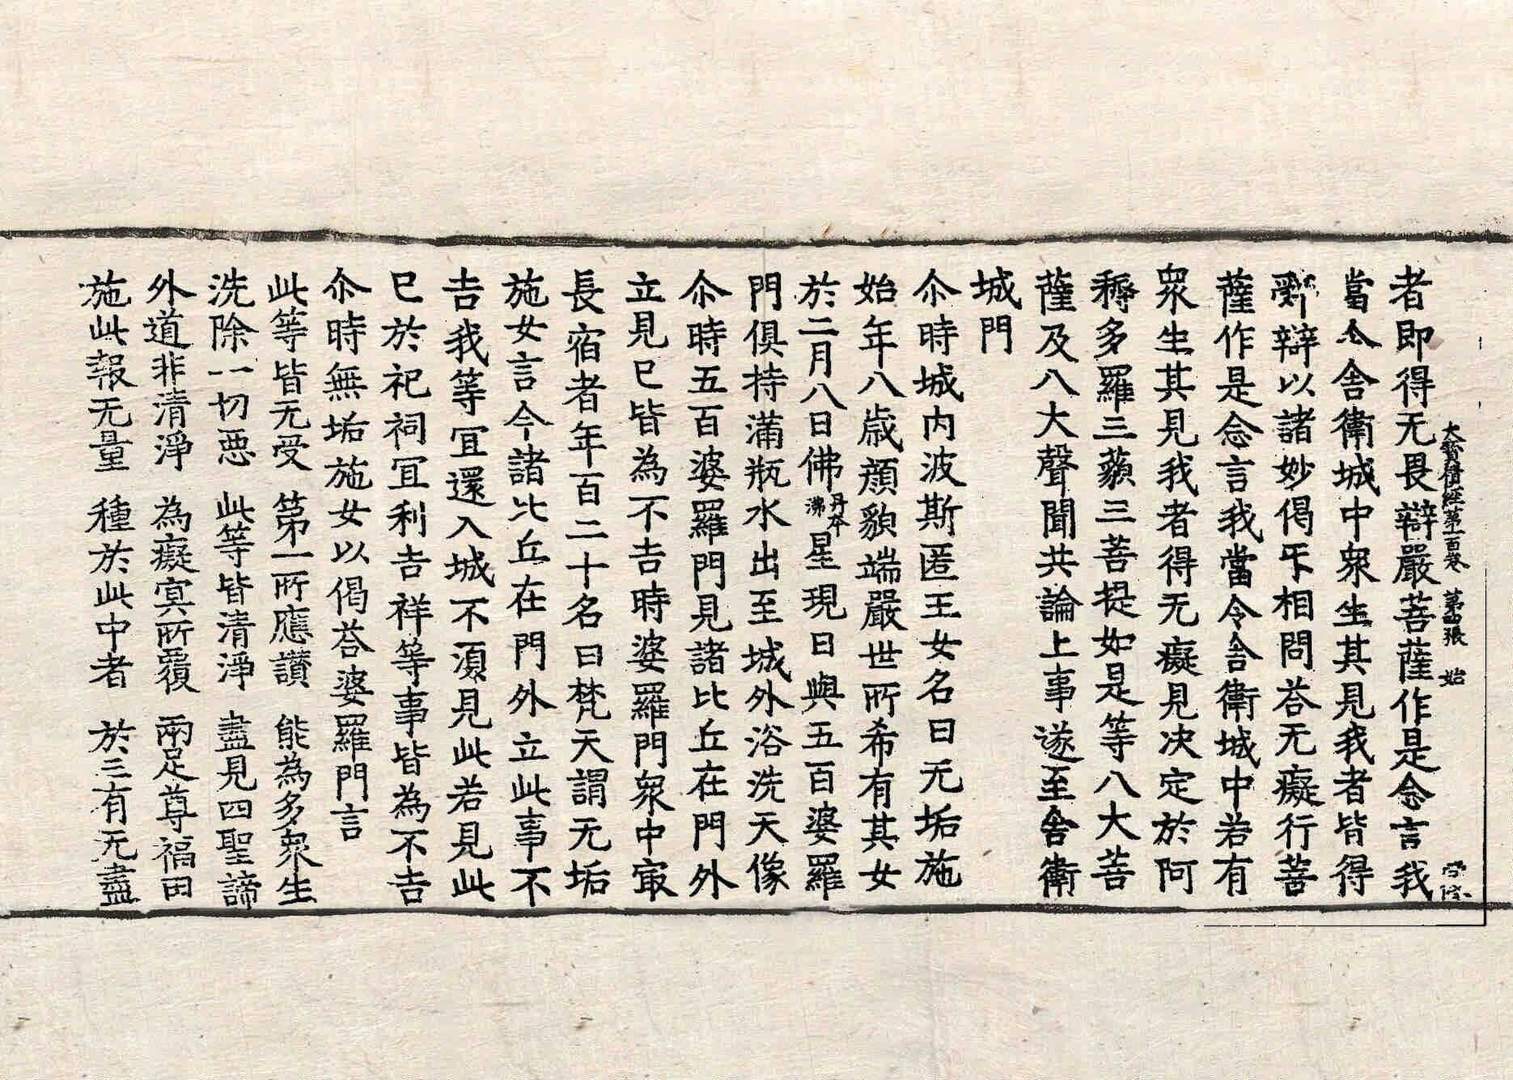 大寶積經第一百卷 第四張 始
者即得无畏辯嚴菩薩作是念言我
當令舍衛城中衆生其見我者皆得
辯以諸妙偈㸦相問荅无癡行菩
薩作是念言我當令舍衛城中若有
衆生其見我者得无癡見决定於阿
耨多羅三藐三菩提如是等八大菩
薩及八大聲聞共論上事遂至舍衛
城門
尒時城内波斯匿王女名曰无垢施
始年八歳顔貌端嚴世所希有其女
於二月八日佛丹本沸星現日與五百婆羅
門俱持滿瓶水出至城外浴洗天像
尒時五百婆羅門見諸比丘在門外
立見已皆為不吉時婆羅門衆中㝡
長宿者年百二十名曰梵天謂无垢
施女言今諸比丘在門外立此事不
吉我等冝還入城不湏見此若見此
已於祀祠冝利吉祥等事皆為不吉
尒時無垢施女以偈荅婆羅門言
此等皆无受 第一所應讚 能為多衆生
洗除一切惡 此等皆清淨 盡見四聖諦
外道非清淨 為癡冥所覆 兩足尊福田
施此報无量 種於此中者 於三有无盡